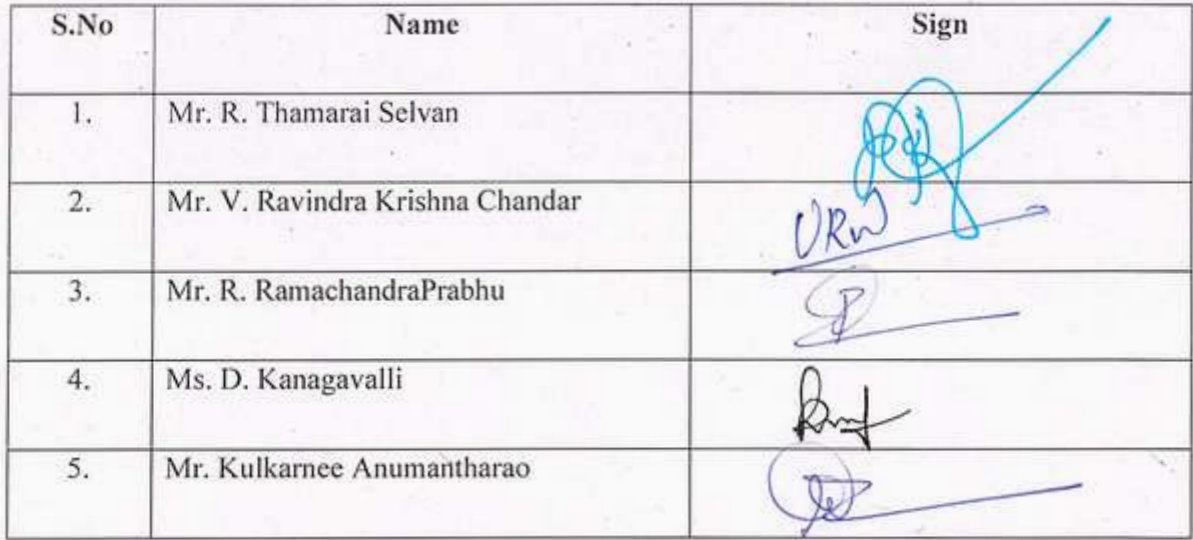 S.No Name Sign
1. Mr. R. Thamarai Selvan
2. Mr. V. Ravindra Krishna Chandar
3. Mr. R. RamachandraPrabhu
4. Ms. D. Kanagavalli
5. Mr. Kulkarnee Anumantharao